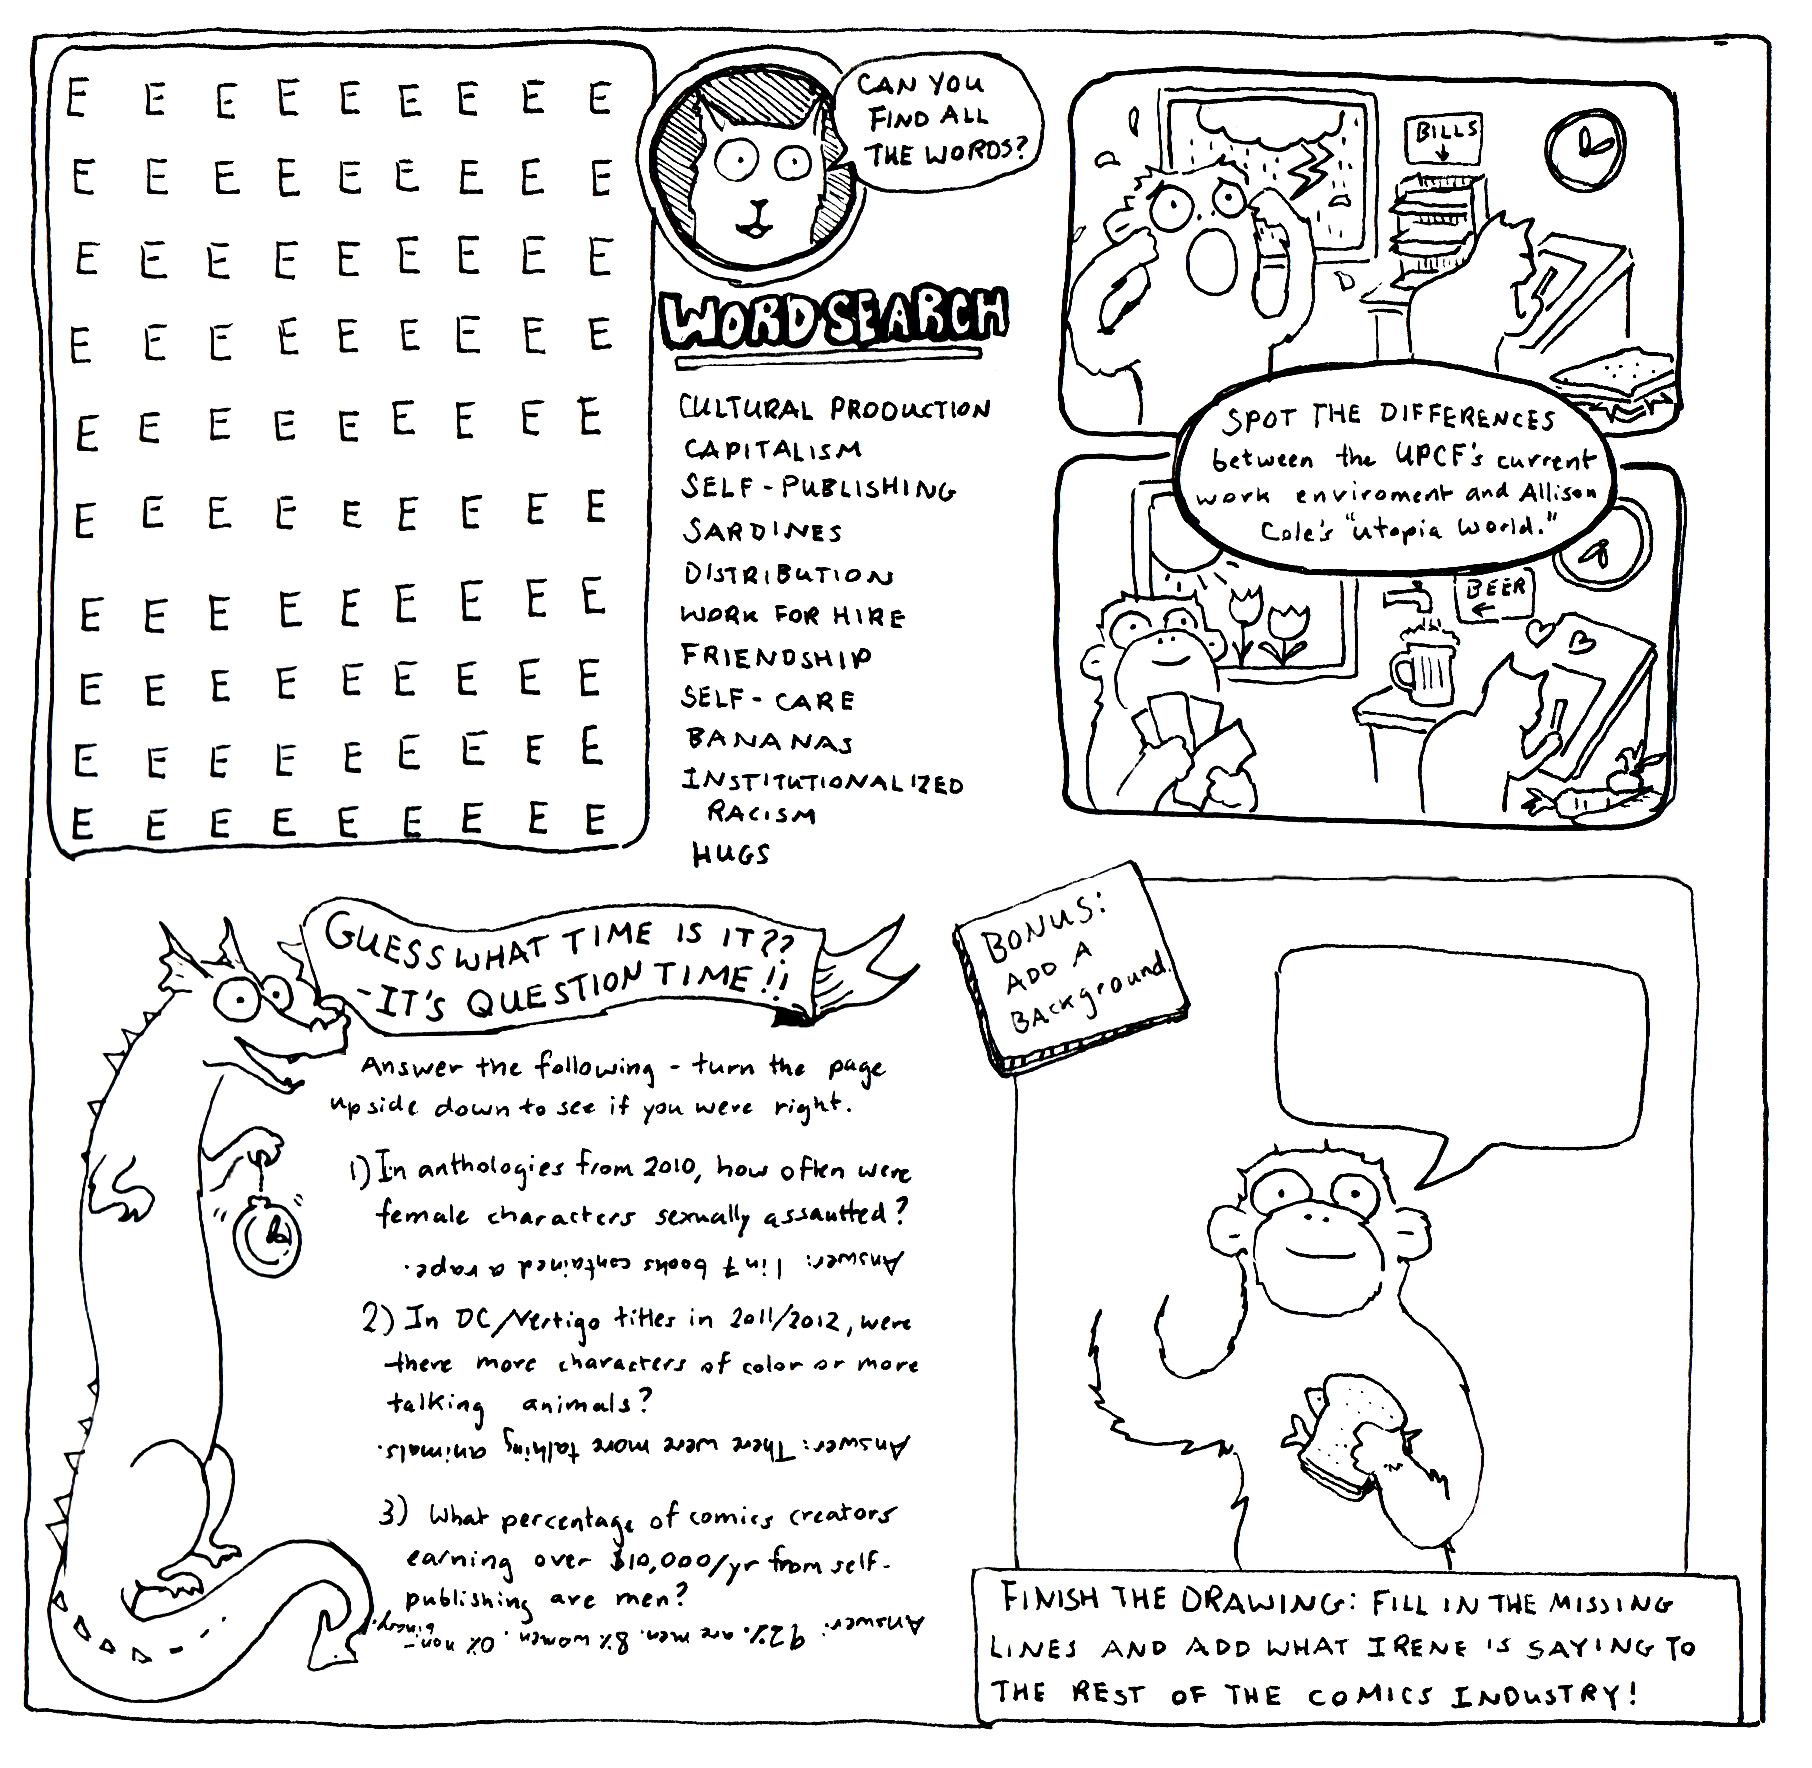 E E E E E E E E E
E E E E E E E E E
E E E E E E E E E
E E E E E E E E E
E E E E E E E E E
E E E E E E E E E
E E E E E E E E E
E E E E E E E E E
E E E E E E E E E
E E E E E E E E E
CAN YOU
FIND ALL
THE WORDS?
WORDSEARCH
CULTURAL PRODUCTION
CAPITALISM
SELF-PUBLISHING
SARDINES
DISTRIBUTION
WORK FOR HIRE
FRIENDSHIP
SELF-CARE
BANANAS
INSTITUTIONALIZED
RACISM
HUGS
BILLS
SPOT THE DIFFERENCES
between the UPCF's current
work enviroment and Allison
Cole's "utopia world."
BEER
GUESS WHAT TIME IS IT??
-IT'S QUESTION TIME!!
Answer the following - turn the page
upside down to see if you were right.
1) In anthologies from 2010, how often were
female characters sexually assautted?
Answer: 1 in 7 books contained a rape.
2) In DC/Vertigo titles in 2011/2012, were
there more characters of color or more
talking animals?
Answer: There were more talking animals.
3) What percentage of comics creators
earning over $10,000/yr from self-
publishing are men?
Answer: 92% are men. 8% women. 0% non-
binary.
BONUS:
ADD A
BACKground.
FINISH THE DRAWING: FILL IN THE MISSING
LINES AND ADD WHAT IRENE IS SAYING TO
THE REST OF THE COMICS INDUSTRY!